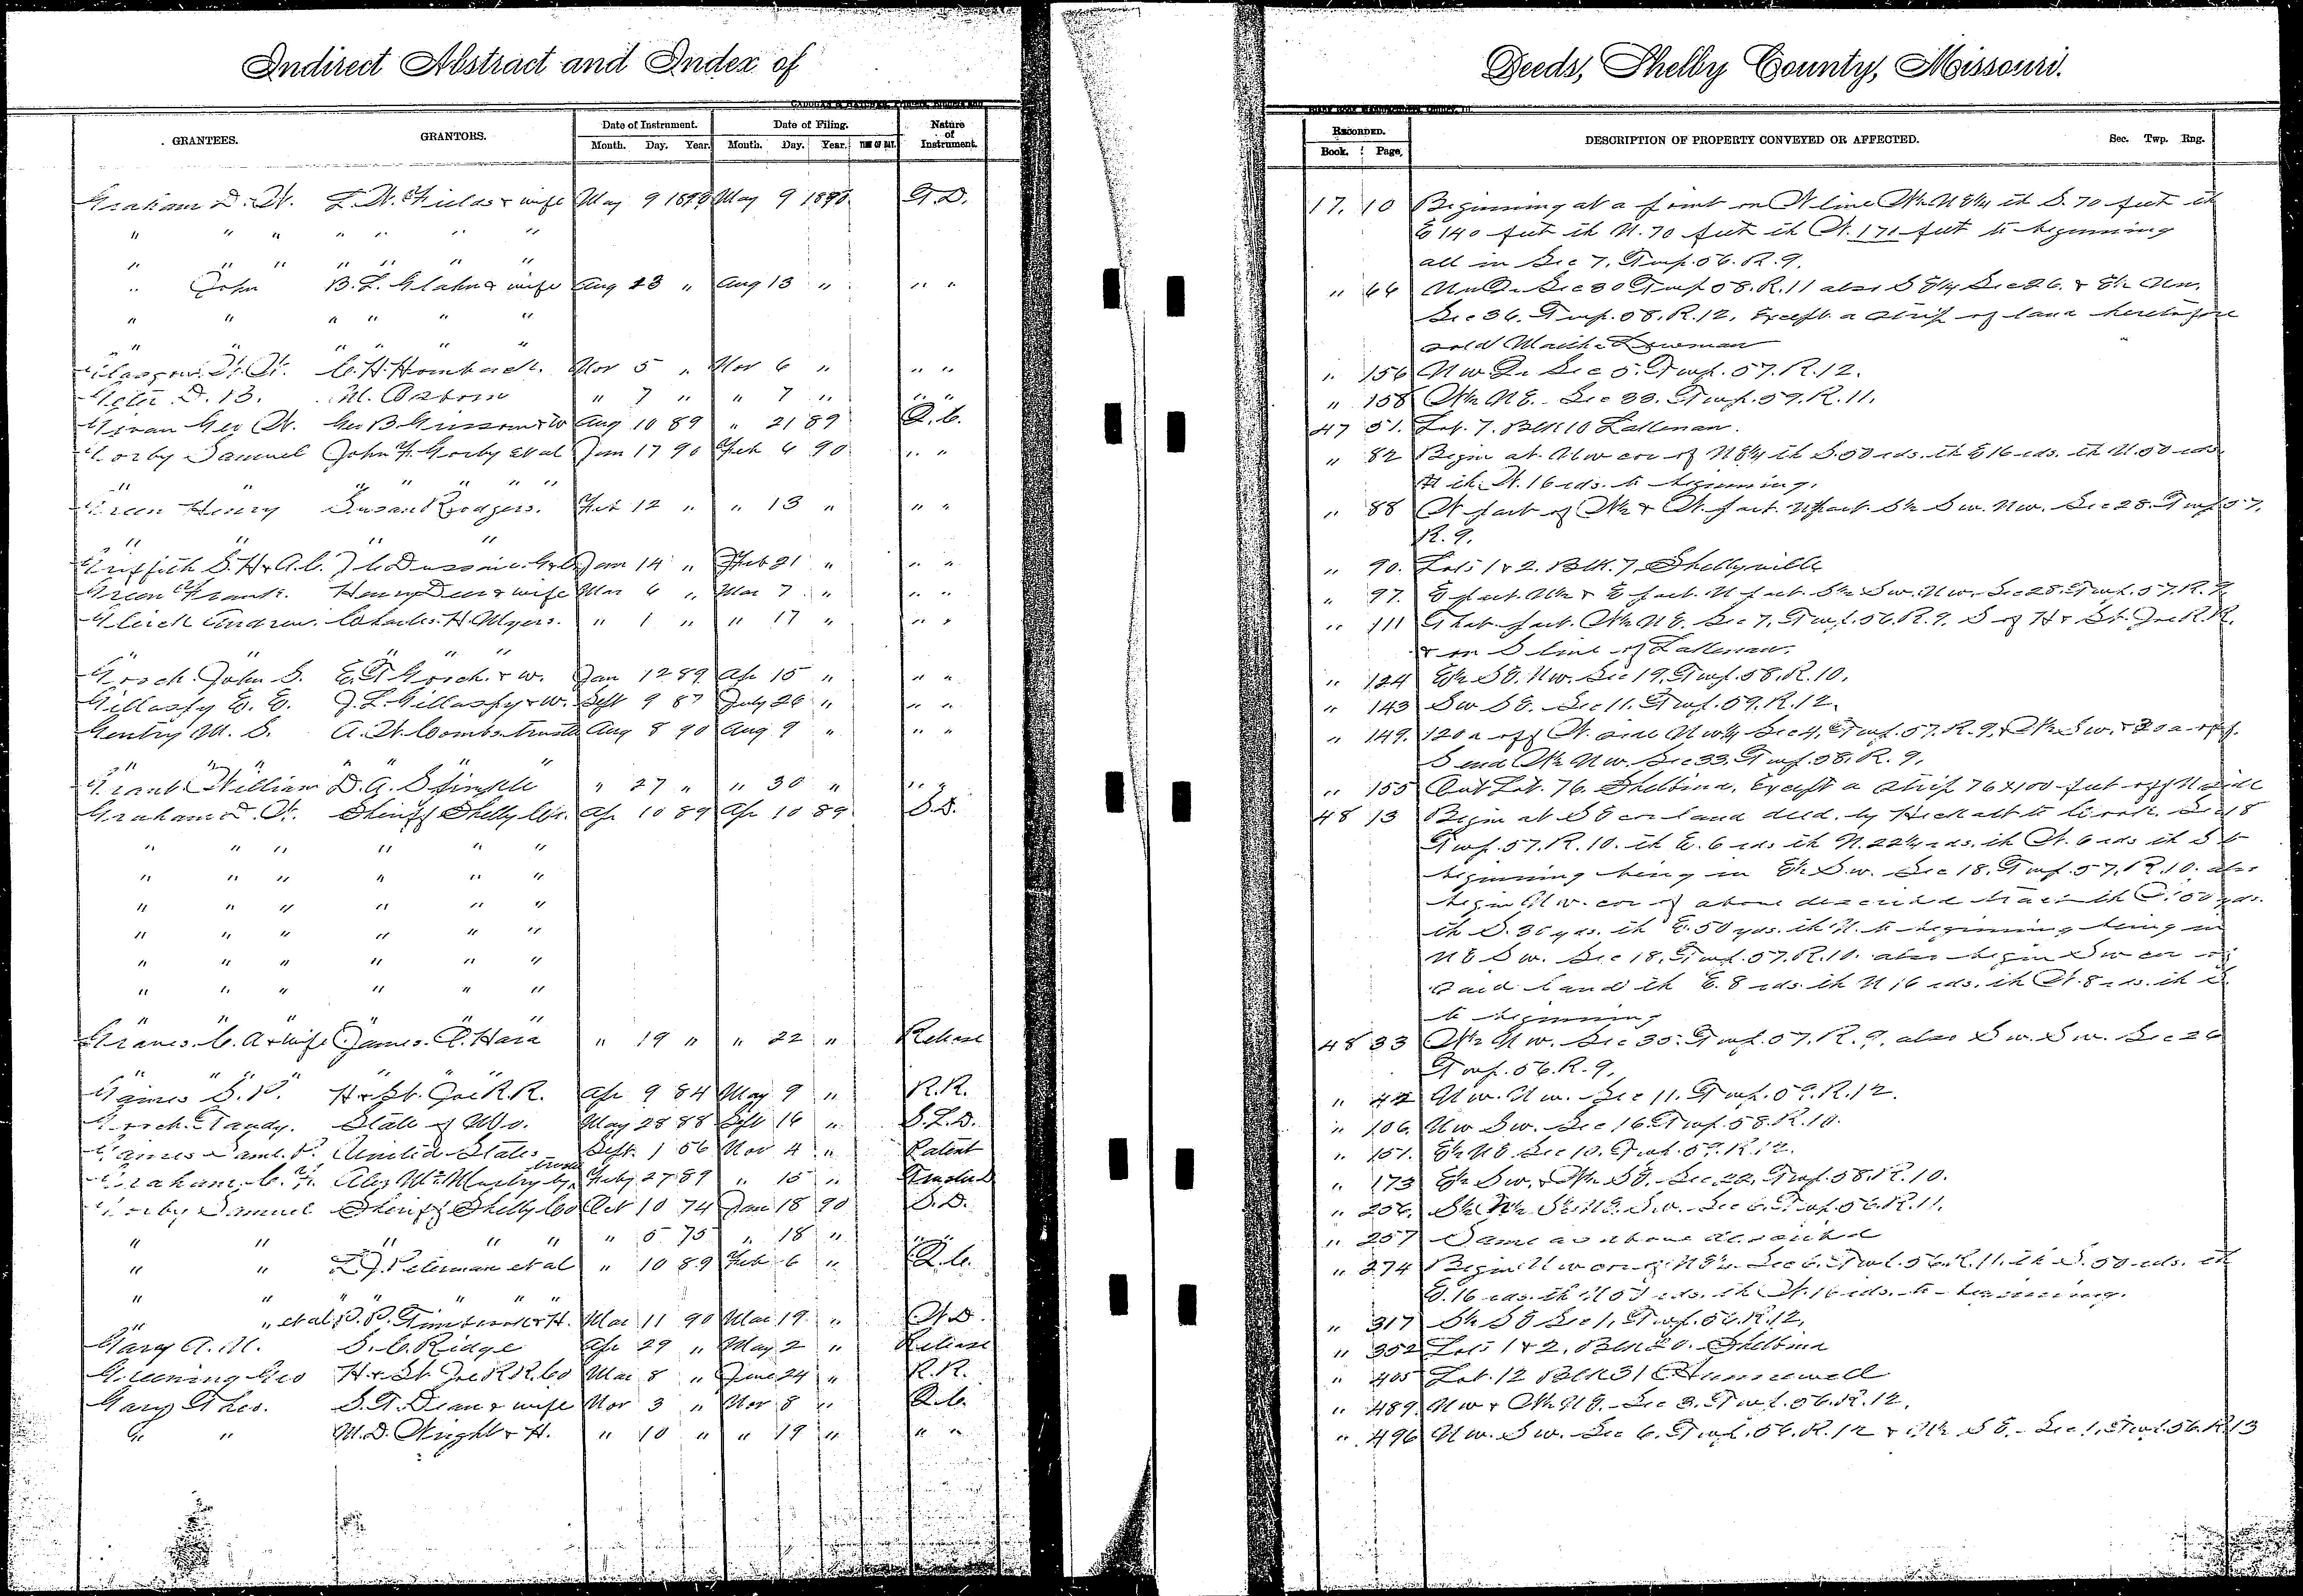 Indirect Abstract and Index of
Deeds, Shelby County, Missouri.
GRANTEES. GRANTORS. Date of Instrument. Month. Day. Year. Date of Filing. Month. Day. Year. TIME OF DAY. Nature of Instrument.
RECORDED. Book. Page. DESCRIPTION OF PROPERTY CONVEYED OR AFFECTED. Sec. Twp. Rng.
Graham D. W. L. W. Fields & wife May 9 1890 May 9 1890 G.D. 17. 10 Beginning at a point on W line W½ N E¼ th S. 70 feet th
" " " " " " " E 140 feet th N. 70 feet th W. 171 feet to beginning
" " " " " " " all in Sec 7. Twp. 56. R. 9.
" John B. L. Glahn & wife Aug 13 " Aug 13 " " " " 66 Sec 30 Twp 58. R. 11 also S E¼ Sec 26. &
" " " " " " Sec 36. Twp. 58. R. 12, Except a strip of land heretofore
" " " " " " sold
Glasgow W. W. C. H. Hornback. Nov 5 " Nov 6 " " " " 156 N w Qr Sec 5. Twp. 57. R. 12.
D. B. M. Osborn " 7 " " 7 " " " " 158 W½ N E. Sec 33. Twp. 59. R. 11.
Givan Geo W. Geo B Grissom & W Aug 10 89 " 21 89 Q.C. 47 51. Lot. 7. Blk 10 Lakenan.
Gorby Samuel John F. Gorby et al Jan 17 90 Feb 6 90 " " " 82 Begin at N w cor of N E¼ th S. 50 rds. th E 16 rds. th N. 50 rds
" " " " " " th W. 16 rds. to beginning.
Green Henry Susan Rodgers. Feb 12 " " 13 " " " " 88 W part of W½ & W. part. N part. S½ S w. N w. Sec 28. Twp 57.
" " " " R. 9.
Griffith S. H & A. C. Jan 14 " Feb 21 " " " " 90. Lots 1 & 2. Blk. 7. Shelbyville
Green Frank. Henry & wife Mar 6 " Mar 7 " " " " 97. E part. W½ & E part. N part. S½ S w. N w. Sec 28. Twp. 57. R. 9
Gleick Andrew. Charles H. Myers. " 1 " " 17 " " " " 111 That part. W½ N E. Sec 7. Twp. 56. R. 9. S of H & St. Joe R. R.
" " " " " & on S line of Lakenan.
Gosch John S. E. T. Gosch. & w. Jan 12 89 Ap 15 " " " " 124 E½ S E. N w. Sec 19. Twp. 58. R. 10.
Gillaspy E. E. J. L. Gillaspy & W. Sept 9 87 July 26 " " " " 143 S w S E. Sec 11. Twp. 59. R. 12.
Gentry M. S. A. W. Combs. trustee Aug 8 90 Aug 9 " " " " 149. 120 a off W. side N w¼ Sec 4. Twp. 57. R. 9. & W½ S w. & 20 a off
" " " " " " S end W½ N w. Sec 33. Twp. 58. R. 9.
Grant William D. A. " 27 " " 30 " " " " 155 Out Lot. 76. Shelbina. Except a strip 76 x 100 feet off N side
Graham D. W. Sheriff Shelby Co. Ap 10 89 Ap 10 89 S.D. 48 13 Begin at S E cor land deed. by to Sec 18
" " " " " " Twp. 57. R. 10. th E. 6 rds th N. 22½ rds. th W. 6 rds th S to
" " " " " " beginning being in E½ S w. Sec 18. Twp. 57. R. 10. also
" " " " " " begin N w. cor of above described tract th W. 50 yds.
" " " " " " th S. 36 yds. th E. 50 yds. th N. to beginning being in
" " " " " " N E S w. Sec 18. Twp. 57. R. 10. also begin S w cor of
" " " " " " said land th E. 8 rds. th N 16 rds. th W. 8 rds. th S.
" " " " " " to beginning
Graves C. A & wife James O. Hara " 19 " " 22 " Release 48 33 W½ N w. Sec 35. Twp. 57. R. 9. also S w. S w. Sec 26
" " " " " " Twp. 56. R. 9.
Gaines S. P. H & St. Joe R. R. Ap 9 84 May 9 " R.R. " 42 N w. N w. Sec 11. Twp. 59. R. 12.
Gosch Tandy. State of Mo. May 28 88 Sept 16 " S.L.D. " 106. N w S w. Sec 16 Twp. 58. R. 10.
Gaines Saml. P. United States Sept. 1 56 Nov 4 " Patent " 151. E½ N E Sec 10. Twp. 59. R. 12.
Graham C. F. Alex by trustee Feby 27 89 " 15 " " 173 E½ S w. & W½ S E. Sec 22. Twp. 58. R. 10.
Gorby Samuel Sheriff Shelby Co Oct 10 74 Jan 18 90 S.D. " 256. Sec 6. Twp. 56. R. 11.
" " " " " " 5 75 " 18 " " " " 257 Same as above described
" " Peterman et al " 10 89 Feb 6 " Q.C. " 274 Begin N w cor of N E¼ Sec 6. Twp. 56. R. 11. th S. 50 rds. th
" " " " " " E. 16 rds. th N 50 rds. th W. 16 rds. to beginning.
" " et al P. P. & H. Mar 11 90 Mar 19 " W.D. " 317 S½ S E Sec 1. Twp. 56. R. 12.
Gary A. M. S. C. Ridge Ap 29 " May 2 " Release " 352 Lots 1 & 2. Blk 20. Shelbina
Greening Geo H. & St Joe R R. Co Mar 8 " June 24 " R.R. " 405 Lot. 12 Blk 31 Hunnewell
Gary Theo. S. T. Dean & wife Nov 3 " Nov 8 " Q.C. " 489. N w & W½ N E. Sec 3. Twp. 56. R. 12.
" " M. D. Wright & H. " 10 " " 19 " " " " 496 N w. S w. Sec 6. Twp. 56. R. 12 & N½ S E. Sec 1. Twp. 56. R. 13